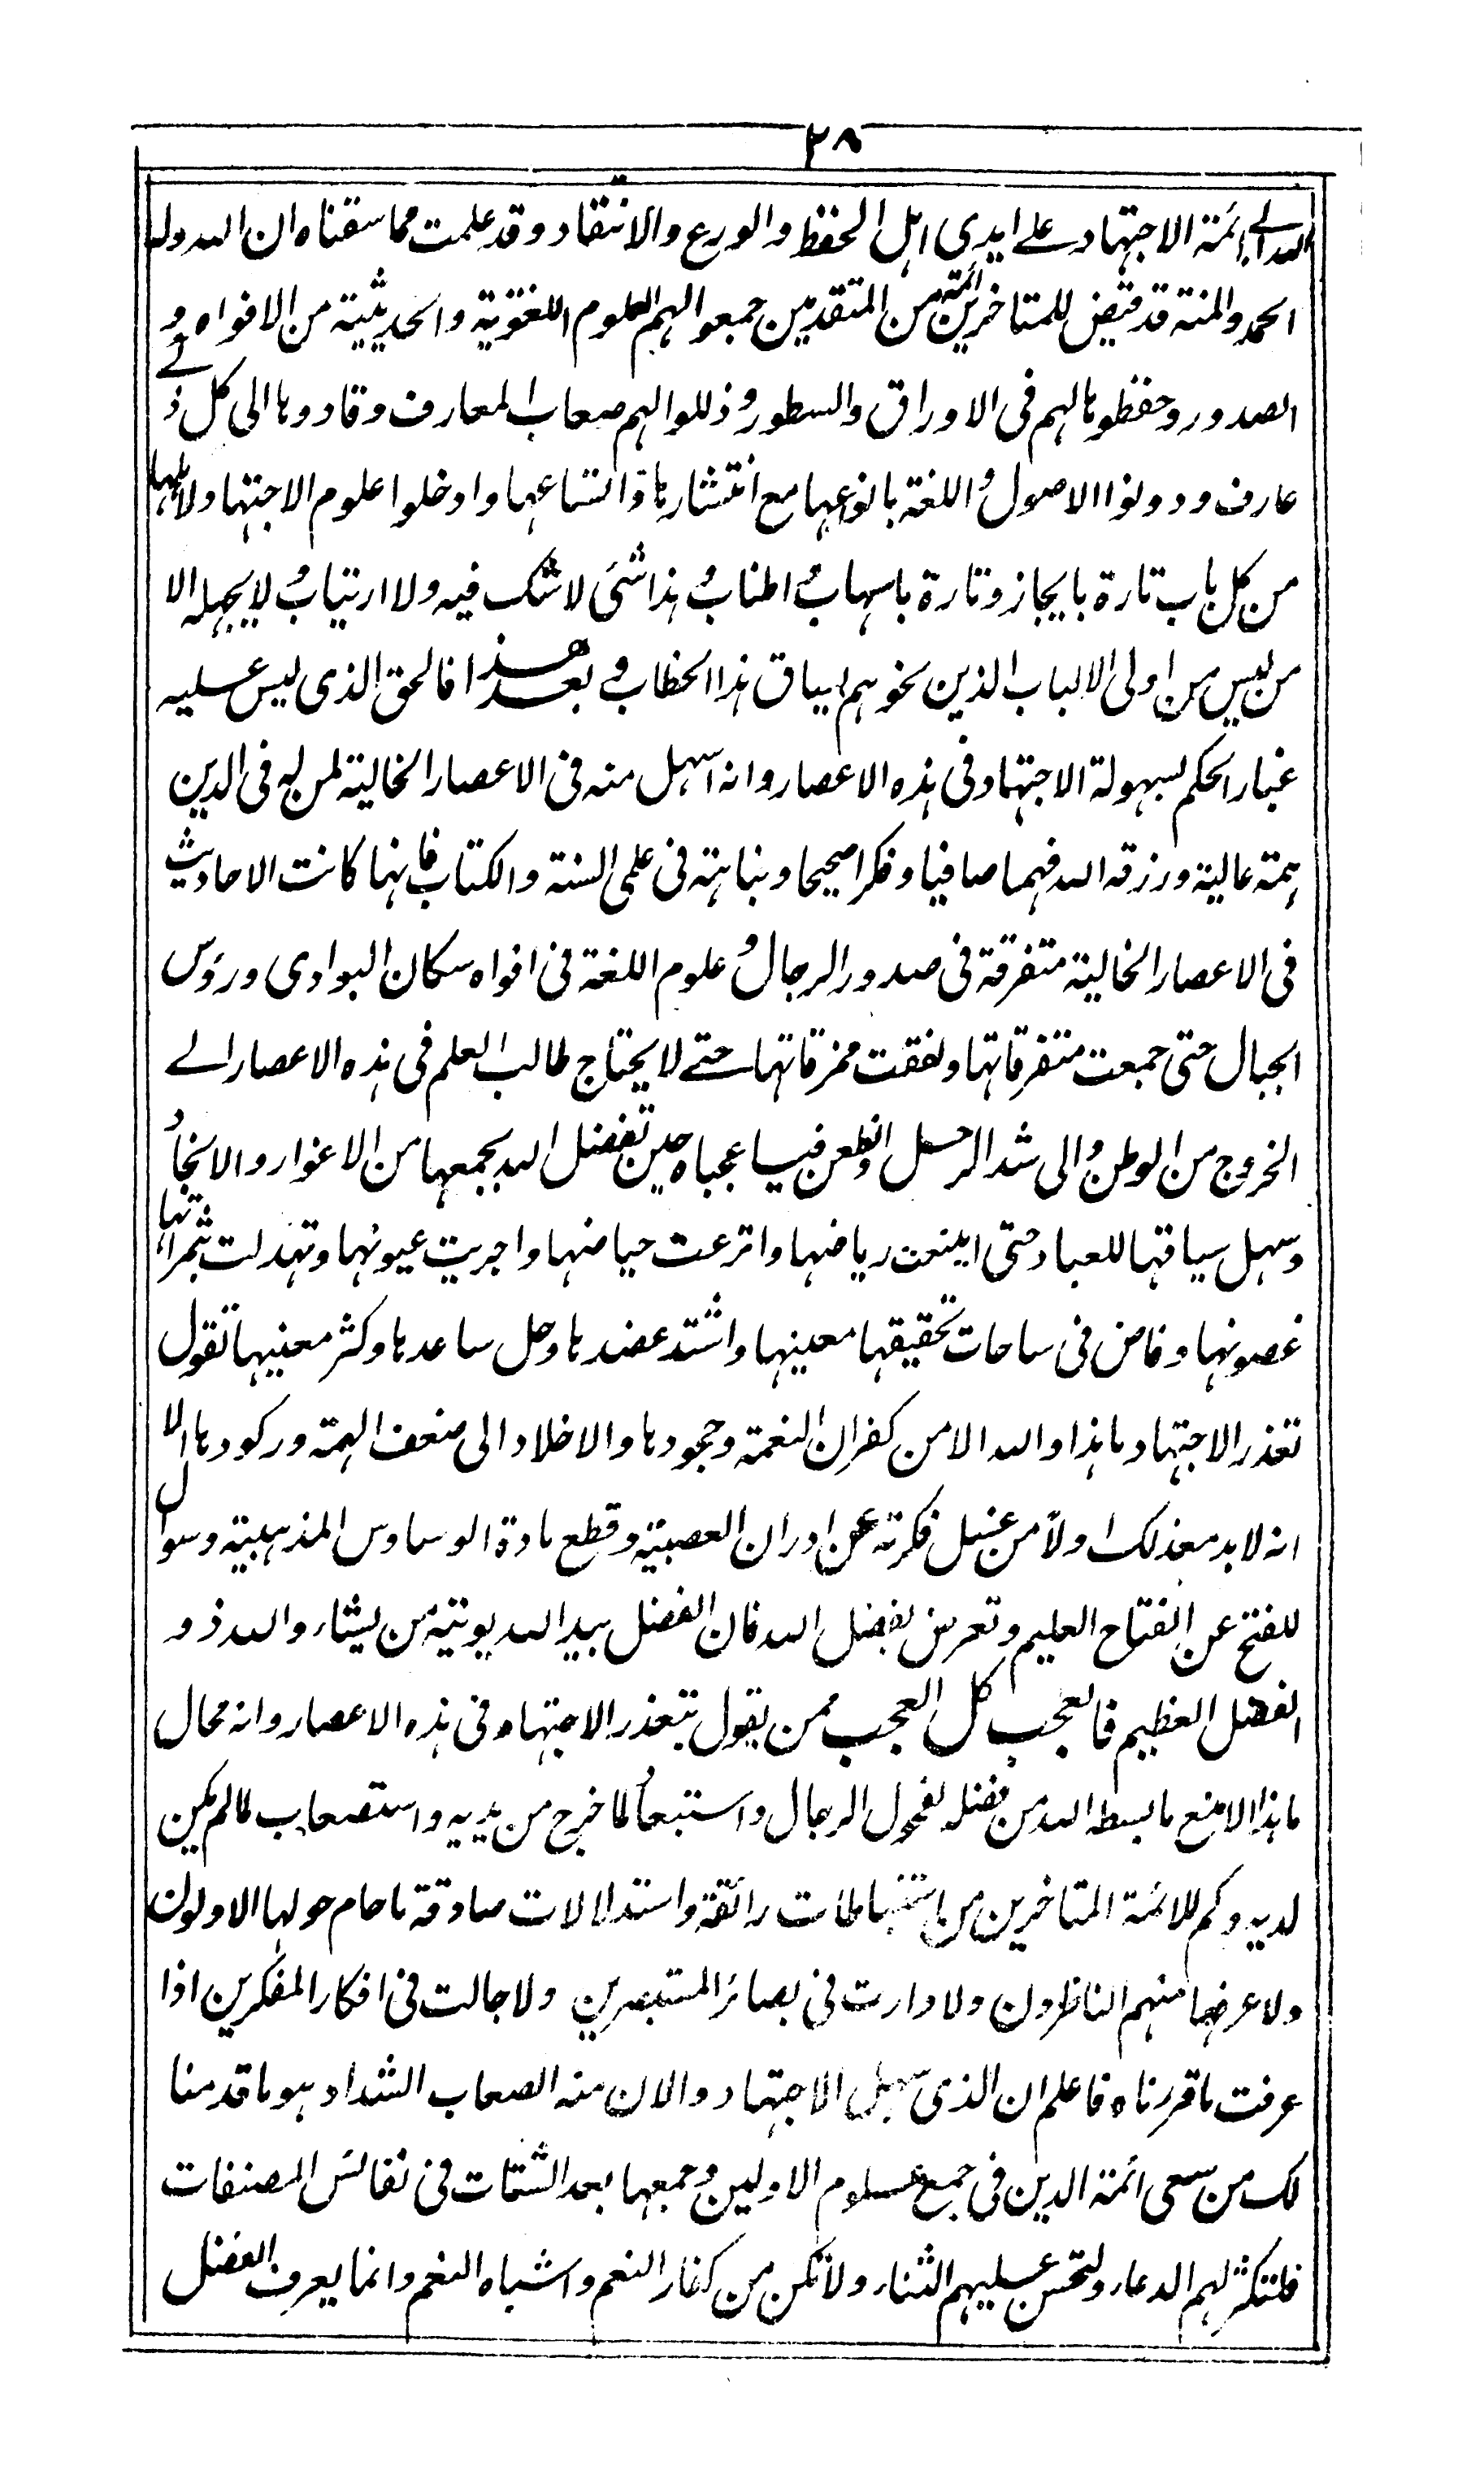 ٢٨
الله الى ائمة الاجتهاد على ايدى اهل الحفظ والورع والانتقاد وقد علمت مما سقناه ان الله وله
الحمد والمنة قد قيض للمتاخرين ائمة من المتقدمين جمعوا لهم العلوم اللغوية والحديثية من الافواه و
الصدور وحفظوها لهم فى الاوراق والسطور وذللوا لهم صعاب المعارف وقادوها الى كل ذى
عارف ودونوا الاصول واللغة بانواعها مع انتشارها واتساعها وادخلوا علوم الاجتهاد لاهلها
من كل باب تارة بايجاز وتارة باسهاب واطناب وهذا شئ لا شك فيه ولا ارتياب ولا يجهله الا
من ليس من اولى الالباب الذين نحوهم يساق هذا الخطاب وبعد هذا فالحق الذى ليس عليه
غبار الحكم بسهولة الاجتهاد فى هذه الاعصار وانه اسهل منه فى الاعصار الخالية لمن له فى الدين
همة عالية ورزقه الله فهما صافيا وفكرا صحيحا ونباهة فى علمى السنة والكتاب فانها كانت الاحاديث
فى الاعصار الخالية متفرقة فى صدور الرجال وعلوم اللغة فى افواه سكان البوادى ورؤس
الجبال حتى جمعت متفرقاتها ولفقت ممزقاتها حتى لا يحتاج طالب العلم فى هذه الاعصار الى
الخروج من الوطن والى شد الرحل والظعن فيا عجباه حين تفضل الله بجمعها من الاغوار والانجاد
وسهل سياقها للعباد حتى اينعت رياضها واترعت حياضها واجريت عيونها وتهدلت بثمراتها
غصونها وفاض فى ساحات تحقيقها معينها واشتد عضدها وحل ساعدها وكثر معينها تقول
تعذر الاجتهاد ما هذا والله الا من كفران النعمة وجحودها والاخلاد الى ضعف الهمة وركودها الا
انه لا بد مع ذلك اولا من غسل فكرته عن ادران العصبية وقطع مادة الوساوس المذهبية وسوال
للفتح عن الفتاح العليم وتعرض لفضل الله فان الفضل بيد الله يوتيه من يشاء والله ذو
الفضل العظيم فالعجب كل العجب ممن يقول بتعذر الاجتهاد فى هذه الاعصار وانه محال
ما هذا الا منع ما بسطه الله من فضله لفحول الرجال واستبعاد لما خرج من يديه واستصعاب لما لم يكن
لديه وكم للائمة المتاخرين من استنباطات رائقة واستدلالات صادقة ما حام حولها الاولون
ولا عرفها منهم الناظرون ولا دارت فى بصائر المستبصرين ولا جالت فى افكار المفكرين اذا
عرفت ما قررناه فاعلم ان الذى سهل الاجتهاد والان منه الصعاب الشداد هو ما قدمنا
لك من سعى ائمة الدين فى جمع علوم الاولين وجمعها بعد الشتات فى نفائس المصنفات
فلتكثر لهم الدعاء ولتحسن عليهم الثناء ولا تكن من كفار النعم واشباه النعم وانما يعرف الفضل